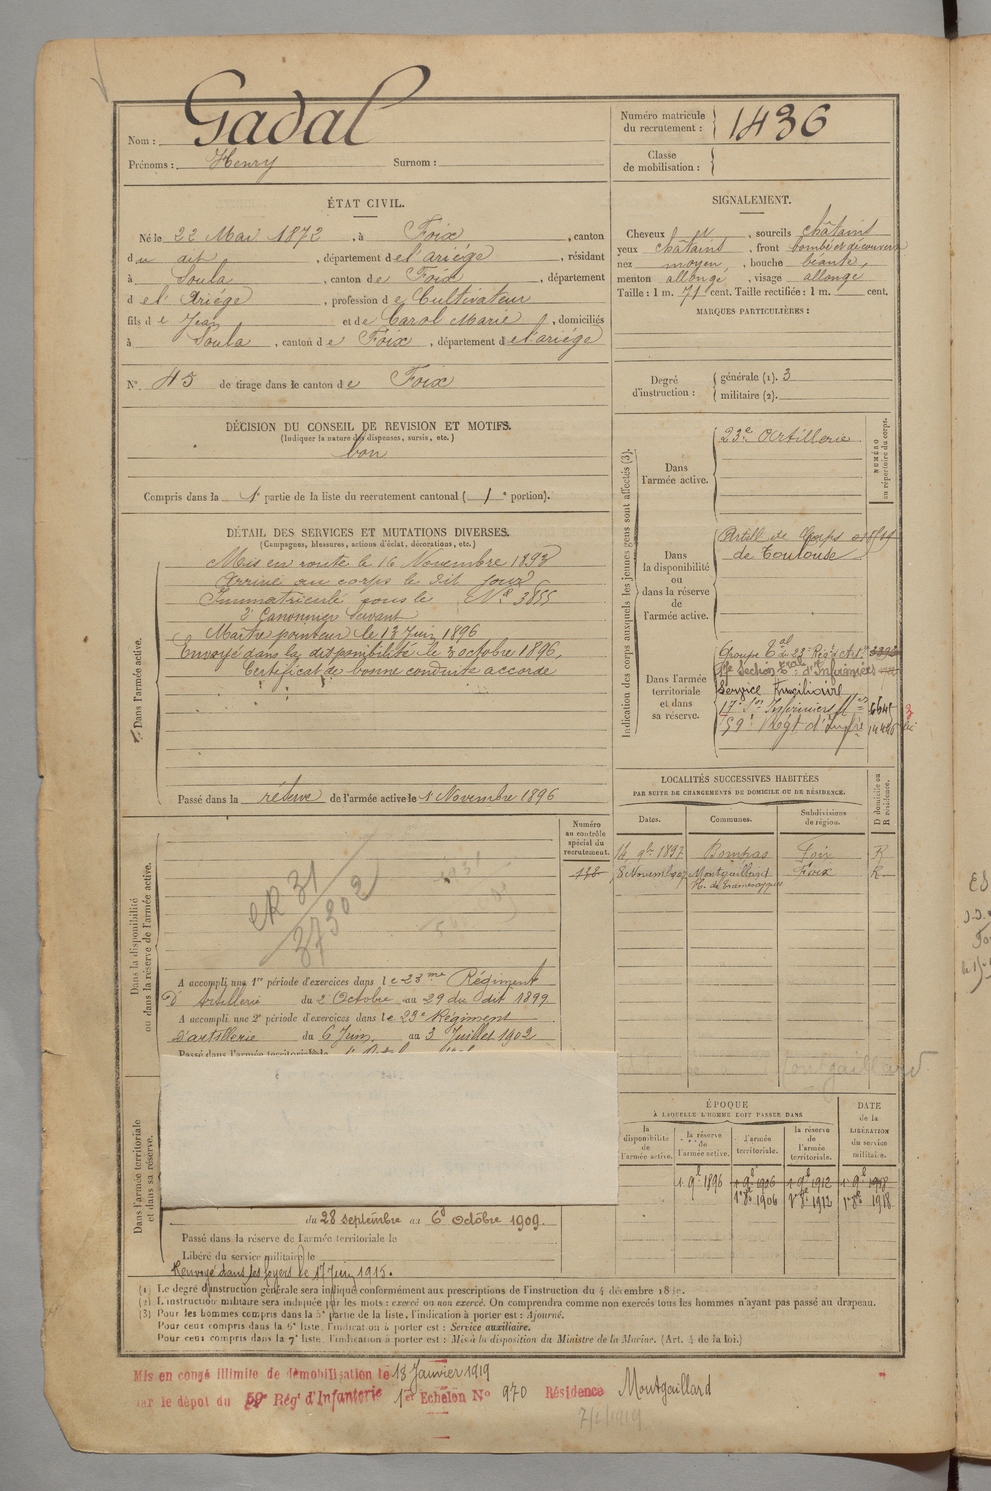 Nom : Gadal
Prénoms : Henry Surnom :
Numéro matricule du recrutement : 1436
Classe de mobilisation :
ÉTAT CIVIL.
Né le 22 Mai 1872, à Foix, canton
du dit, département de l'ariége, résidant
à Soula, canton de Foix, département
de l'Ariége, profession de Cultivateur
fils de Jean et de Carol Marie, domiciliés
à Soula, canton de Foix, département de l'ariége
N° 45 de tirage dans le canton de Foix
SIGNALEMENT.
Cheveux, sourcils châtains
yeux châtains, front bombé et découvert
nez moyen, bouche béante,
menton allongé, visage allongé
Taille : 1 m. 71 cent. Taille rectifiée : 1 m. cent.
MARQUES PARTICULIÈRES :
Degré d'instruction : générale (1). 3
militaire (2).
DÉCISION DU CONSEIL DE REVISION ET MOTIFS.
(Indiquer la nature des dispenses, sursis, etc.)
bon
Compris dans la 1e partie de la liste du recrutement cantonal (1e portion).
DÉTAIL DES SERVICES ET MUTATIONS DIVERSES.
(Campagnes, blessures, actions d'éclat, décorations, etc.)
Dans l'armée active.
Mis en route le 16 Novembre 1893
Arrivé au corps le dit jour
Immatriculé sous le N° 3855
2e Canonnier Servant
Maître pointeur le 13 Juin 1896
Envoyé dans la disponibilité le 3 octobre 1896,
Certificat de bonne conduite accordé
Passé dans la réserve de l'armée active le 1 Novembre 1896
Indication des corps auxquels les jeunes gens sont affectés (3).
NUMÉRO au répertoire du corps.
Dans l'armée active.
23e Artillerie
Dans la disponibilité ou dans la réserve de l'armée active.
Artill de Corps
de Toulouse
Dans l'armée territoriale et dans sa réserve.
Groupe Tal du 23e Rég d'Art
Section Tale d'Infirmiers
Service Auxiliaire
17e Son Infirmiers 6645
59e Régt d'Infrie
LOCALITÉS SUCCESSIVES HABITÉES
PAR SUITE DE CHANGEMENTS DE DOMICILE OU DE RÉSIDENCE.
Dates. Communes. Subdivisions de région. D domicile ou R résidence.
14 9bre 1897 Bompas Foix R
8 Novemb 1907 Montgaillard Foix R
Numéro au contrôle spécial du recrutement.
Dans la disponibilité ou dans la réserve de l'armée active.
CR 31
37302
A accompli une 1re période d'exercices dans le 23me Régiment
D'Artillerie du 2 Octobre au 29 du dit 1899
A accompli une 2e période d'exercices dans le 23e Régiment
D'artillerie du 6 Juin au 3 Juillet 1902
Montgaillard
ÉPOQUE
A LAQUELLE L'HOMME DOIT PASSER DANS
la disponibilité de l'armée active. la réserve de l'armée active. l'armée territoriale. la réserve de l'armée territoriale. DATE de la LIBÉRATION du service militaire.
1. 9bre 1896 1 9bre 1906 1 9bre 1912 1 9bre 1918
1er 8bre 1906 1er 8bre 1912 1er 8bre 1918
Dans l'armée territoriale et dans sa réserve.
du 28 septembre au 6 Octobre 1909.
Passé dans la réserve de l'armée territoriale le
Libéré du service militaire le
Renvoyé dans ses foyers le 17 Juin 1915.
(1) Le degré d'instruction générale sera indiqué conformément aux prescriptions de l'instruction du 4 décembre
(2) L'instruction militaire sera indiquée par les mots : exercé ou non exercé. On comprendra comme non exercés tous les hommes n'ayant pas passé au drapeau.
(3) Pour les hommes compris dans la 5e partie de la liste, l'indication à porter est : Ajourné.
Pour ceux compris dans la 6e liste, l'indication à porter est : Service auxiliaire.
Pour ceux compris dans la 7e liste, l'indication à porter est : Mis à la disposition du Ministre de la Marine. (Art. 4 de la loi.)
Mis en congé illimité de démobilisation le 18 Janvier 1919
par le dépôt du 59e Rég' d'Infanterie 1er Echelon N° 970 Résidence Montgaillard